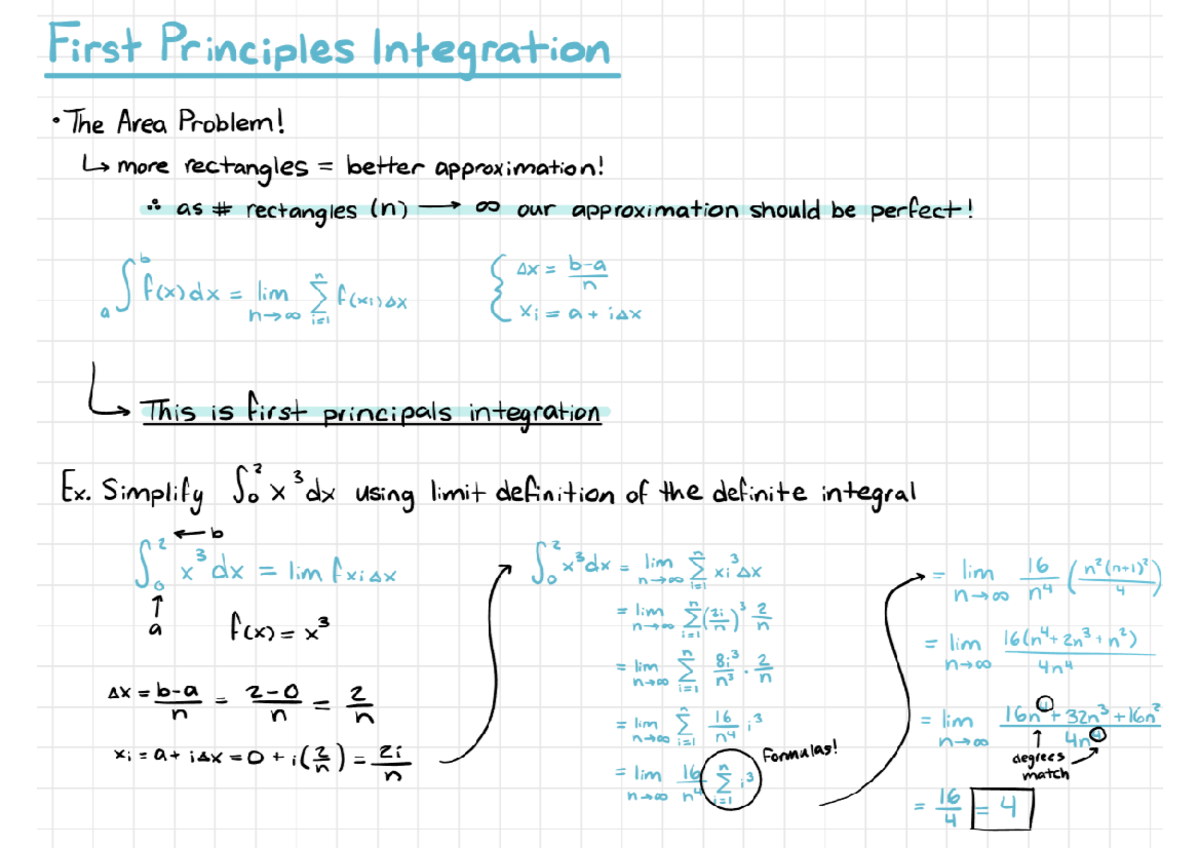 First Principles Integration
• The Area Problem!
↳ more rectangles = better approximation!
∴ as # rectangles (n) → ∞ our approximation should be perfect!
∫ₐᵇ f(x)dx = lim n→∞ Σ i=1 n f(xi)Δx { Δx = b-a/n
xi = a + iΔx
↳ This is first principals integration
Ex. Simplify ∫₀² x³dx using limit definition of the definite integral
∫₀² x³ dx = lim fxiΔx
← b
↑
a
f(x) = x³
Δx = b-a/n = 2-0/n = 2/n
xi = a + iΔx = 0 + i(2/n) = 2i/n
∫₀² x³dx = lim n→∞ Σ i=1 n xi³Δx
= lim n→∞ Σ i=1 n (2i/n)³ 2/n
= lim n→∞ Σ i=1 n 8i³/n³ · 2/n
= lim n→∞ Σ i=1 n 16/n⁴ i³
= lim n→∞ 16/n⁴ Σ i=1 n i³
Formulas!
= lim n→∞ 16/n⁴ (n²(n+1)²/4)
= lim n→∞ 16(n⁴+2n³+n²)/4n⁴
= lim n→∞ 16n⁴+32n³+16n²/4n⁴
degrees
match
= 16/4 = 4